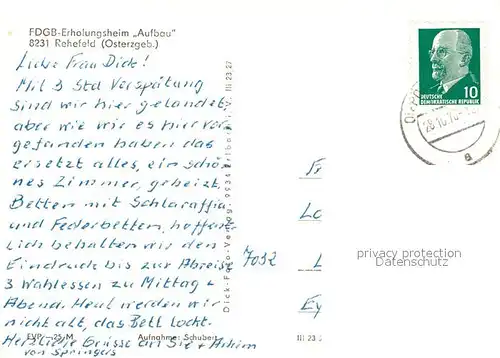 FDGB-Erholungsheim „Aufbau"
8231 Rehefeld (Osterzgeb.)
Liebe Frau Dick!
Mit 3 Std Verspätung
sind wir hier gelandet,
aber wie wir es hier vor
gefunden haben das
ersetzt alles, ein schö
nes Zimmer, geheizt.
Betten mit Schlaraffia
und Federbetten, hoffent
lich behalten wir den
Eindruck bis zur Abreise
3 Wahlessen zu Mittag +
Abend. Heut werden wir
nicht alt, das Bett lockt.
Herzliche Grüsse an Sie + Achim
von Springers
EVP -,25 M
Aufnahme: Schubert
Dick-Foto-Verlag, 9934 Erlbach i. V. III 23 27
10
DEUTSCHE
DEMOKRATISCHE REPUBLIK
28.10.70
a
Fr
7012
L
Ey
III 23 2
privacy protection
Datenschutz